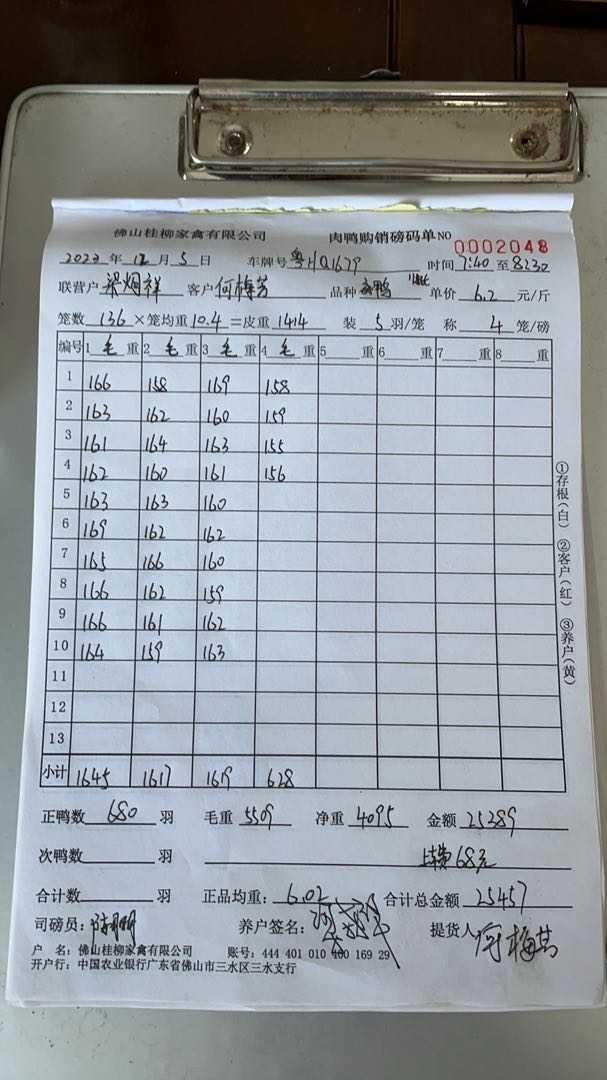 佛山桂柳家禽有限公司 肉鸭购销磅码单NO 0002048
2023年12月5日 车牌号 粤HQ1679 时间 7:40 至 8:30
联营户 梁炯祥 客户 何梅芳 品种 鸭 单价 6.2 元/斤
笼数 136 ×笼均重 10.4 =皮重 1414 装 5 羽/笼 称 4 笼/磅
编号 1 毛 重 2 毛 重 3 毛 重 4 毛 重 5 重 6 重 7 重 8 重
1 166 158 169 158
2 163 162 160 159
3 161 164 163 155
4 162 160 161 156
5 163 163 160
6 169 162 162
7 165 166 160
8 166 162 159
9 166 161 162
10 164 159 163
11
12
13
小计 1645 1617 1619 628
①存根(白) ②客户(红) ③养户(黄)
正鸭数 680 羽 毛重 5509 净重 4095 金额 25389
次鸭数 羽 68元
合计数 羽 正品均重: 6.02 合计总金额 25457
司磅员: 养户签名: 提货人 何梅芳
户 名: 佛山桂柳家禽有限公司 账号: 444 401 010 400 169 29
开户行: 中国农业银行广东省佛山市三水区三水支行